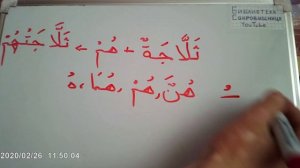 БИБЛИОТЕКА
СОКРОВИЩНИЦЕ
YouTube
ثَلَّاجَةٌ + هُمْ > ثَلَّاجَتُهُمْ
ـُ هُ، هُمَا، هُمْ، هُنَّ
2020/02/26 11:50:04